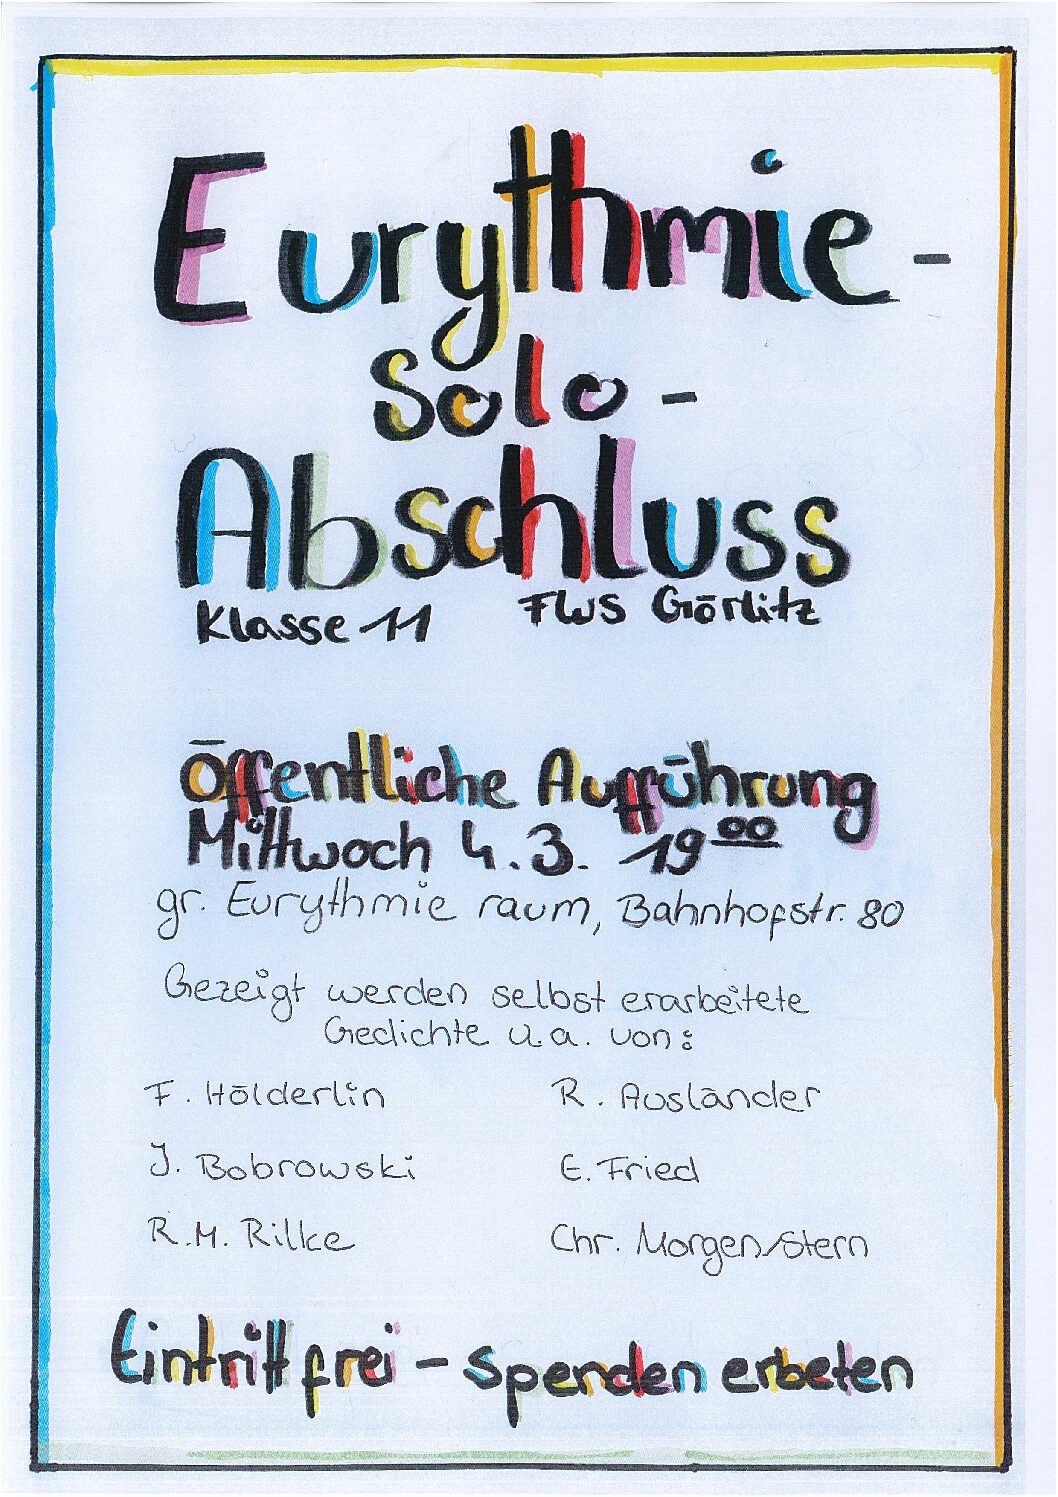 Eurythmie-
Solo-
Abschluss
Klasse 11 FWS Görlitz
öffentliche Aufführung
Mittwoch 4.3. 19⁰⁰
gr. Eurythmie raum, Bahnhofstr. 80
Gezeigt werden selbst erarbeitete
Gedichte u.a. von:
F. Hölderlin R. Ausländer
J. Bobrowski E. Fried
R.M. Rilke Chr. Morgenstern
Eintritt frei - Spenden erbeten